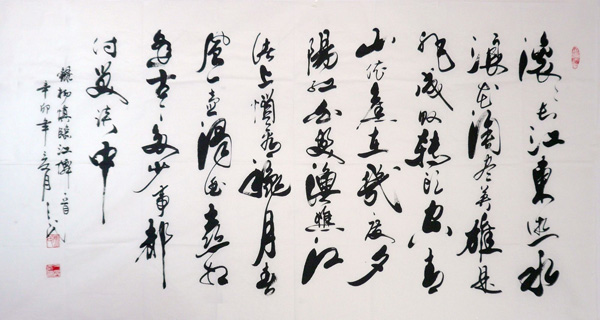 滚々长江東逝水
浪花淘尽英雄是
非成败转头空青
山依舊在幾度夕
陽红白髮渔樵江
渚上惯看秋月春
風一壶濁酒喜相
逢古今多少事都
付笑谈中
録杨慎臨江仙一首
辛卯年 月